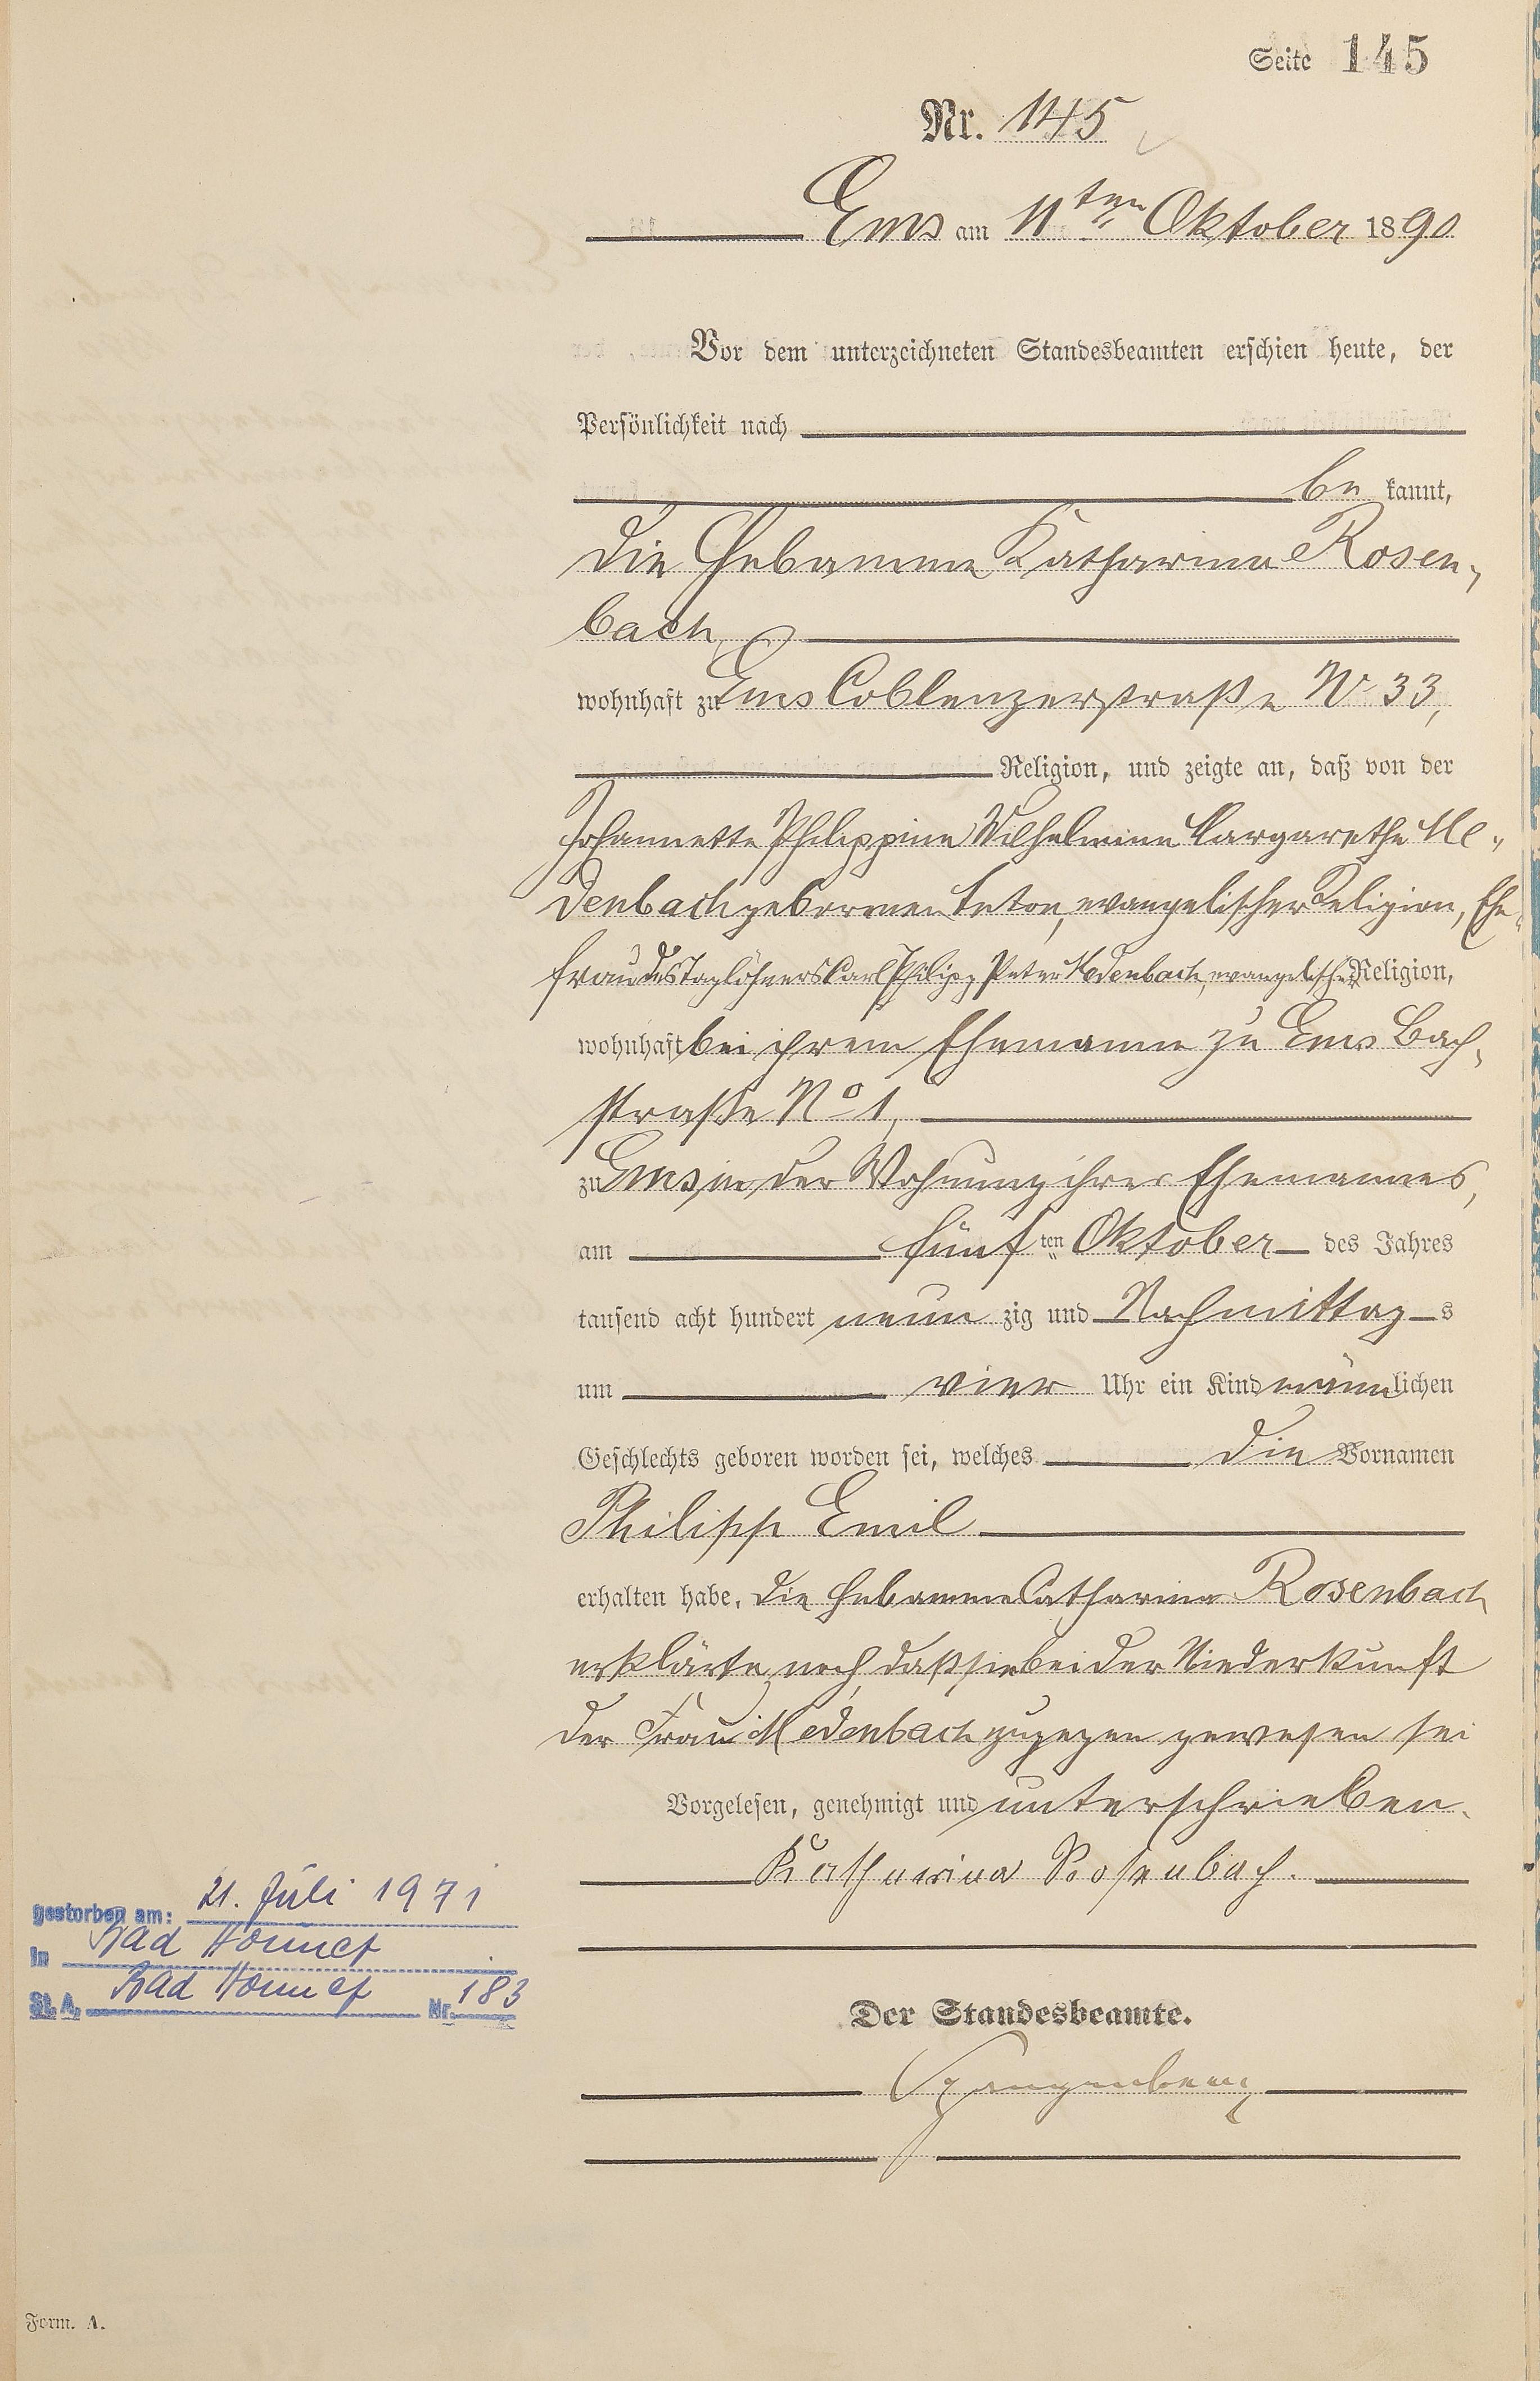 Seite 145
Nr. 145
Ems am 11ten Oktober 1890
Vor dem unterzeichneten Standesbeamten erschien heute, der
Persönlichkeit nach
be kannt,
die Hebamme Katharina Rosen-
bach,
wohnhaft zu Ems Coblenzerstraße No 33,
Religion, und zeigte an, daß von der
Johannette Philippine Wilhelmine Margarethe Me-
denbach geborenen, evangelischer Religion, Ehe-
frau des Taglöhners Carl Philipp Peter Medenbach, evangelischer Religion,
wohnhaft bei ihrem Ehemanne zu Ems Bach-
straße No 1,
zu Ems in der Wohnung ihres Ehemannes,
am fünf ten Oktober des Jahres
tausend acht hundert neun zig und Nachmittag s
um vier Uhr ein Kind männlichen
Geschlechts geboren worden sei, welches die Vornamen
Philipp Emil
erhalten habe. Die Hebamme Catharina Rosenbach
erklärte, noch, daß sie bei der Niederkunft
der Frau Medenbach zugegen gewesen sei
Vorgelesen, genehmigt und unterschrieben.
Katharina Rosenbach.
Der Standesbeamte.
Spangenberg
gestorben am: 21. Juli 1971
in Bad Honnef
St. A. Bad Honnef Nr. 183
Form. A.